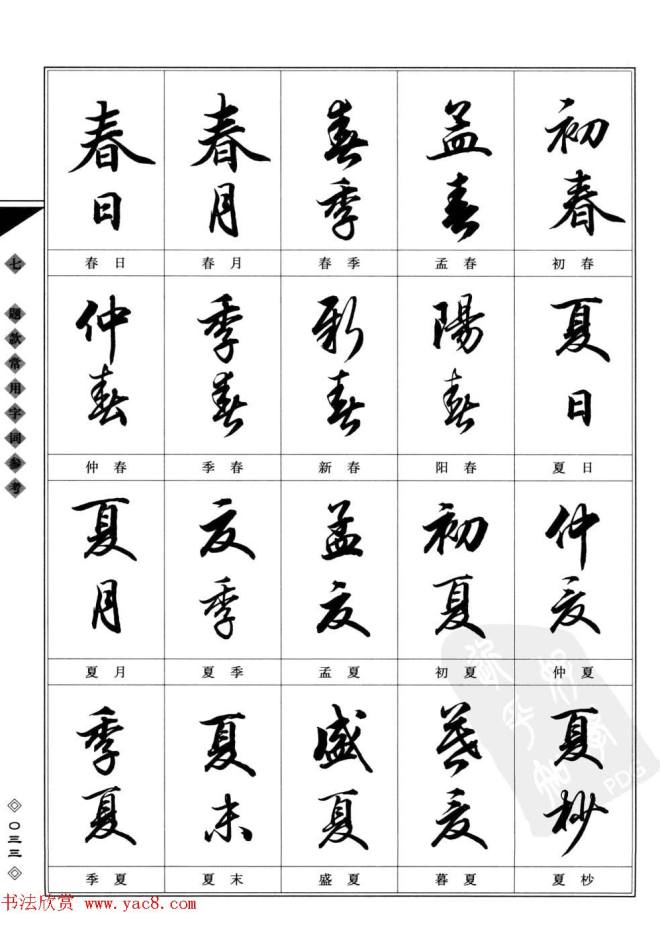 春日
春月
春季
孟春
初春
春日
春月
春季
孟春
初春
仲春
季春
新春
陽春
夏日
仲春
季春
新春
阳春
夏日
夏月
夏季
孟夏
初夏
仲夏
夏月
夏季
孟夏
初夏
仲夏
季夏
夏末
盛夏
暮夏
夏杪
季夏
夏末
盛夏
暮夏
夏杪
七 题款常用字词参考
〇三三
书法欣赏 www.yac8.com
PDG